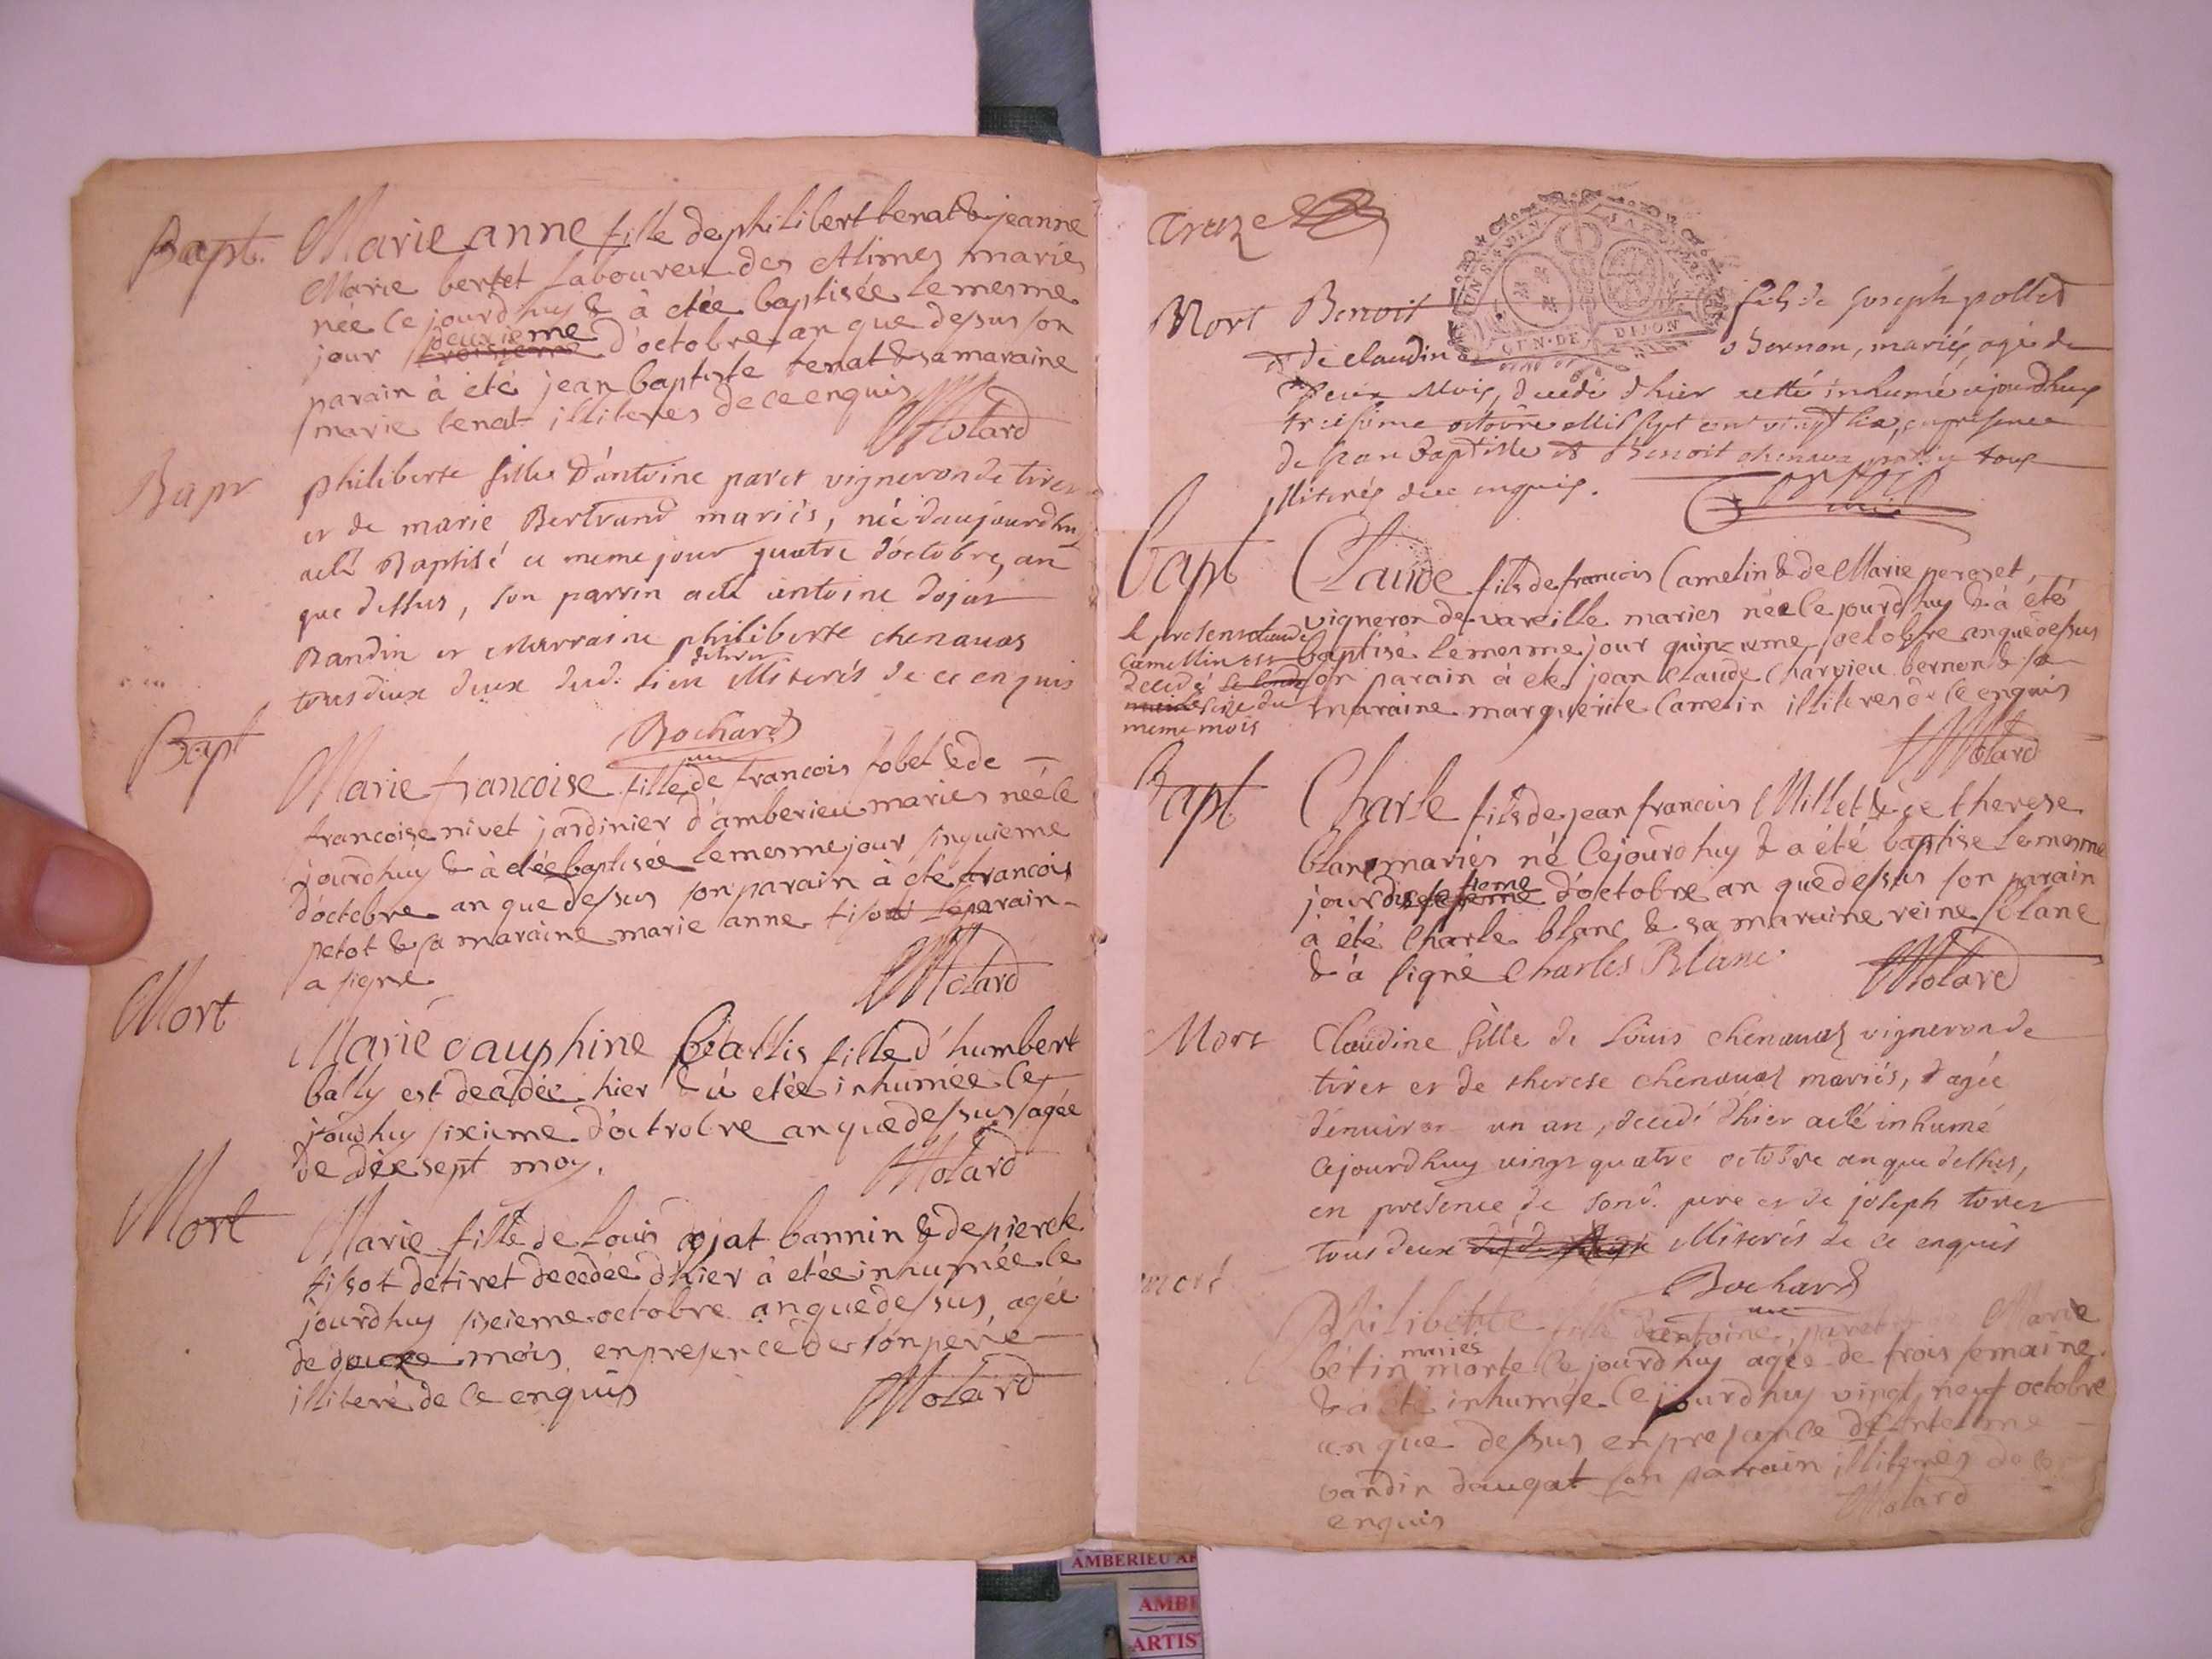 Bapt. Marie anne fille de philibert tenat & jeanne
Marie bertet laboureu des Alimes mariés
née ce jourdhuy & à etée baptisée le mesme
jour deuxieme d'octobre an que dessus son
parain à été jean baptiste tenat & sa maraine
marie tenat illiteres de ce enquis
Molard
Bapt philiberte fille d'antoine paret vigneron de tiret
et de marie Bertrand mariés, née d'aujourdhuy
a été Baptisé ce meme jour quatre d'octobre, an
que dessus, son parrin a été antoine dojat
Bandin et Marraine philiberte chenavas
tous deux dud. lieu illiterés de ce enquis
Bochard
Bapt Marie francoise fille de francois fobet & de
francoise nivet jardinier d'amberieu mariés née le
jourdhuy & à etée baptisée le mesme jour sinquieme
d'octobre an que dessus son parain à été francois
petot & sa maraine marie anne tisot le parain
a signé
Molard
Mort Marie dauphine fille d'humbert
bally est decedée hier & à etée inhumée ce
jourdhuy sixieme d'octrobre an que dessus agée
de diesept moy.
Molard
Mort Marie fille de Louis dojat bannin & de
tissot de tiret decedée d'hier à etée inhumée ce
jourdhuy sixieme octobre an que dessus, agée
de mois en presence de son pere
illiteré de ce enquis
Molard
Treize
GEN. DE DIJON
Mort Benoit fils de joseph pollet
& de claudine Bernon, mariés, agé de
Deux Mois, decedé d'hier a esté inhumé cejourdhuy
treisième octobre Mil sept cent vingt en presence
de jean Baptiste & Benoit chenavas tous
illiterés de ce enquis.
Bapt Claude fils de francois Camelin & de Marie peroset
vigneron de vareille mariés née ce jourdhuy & à été
baptisé le mesme jour quinzieme octobre an que dessus
son parain à eté jean claude Charvieu bernon & sa
maraine marguerite Camelin illiteres de ce enquis
Molard
le present claude
Camellin est
decedé
seize du
meme mois
Bapt. Charle fils de jean francois Millet & de therese
blanc mariés né ce jourdhuy & a été baptise le mesme
jour d'octobre an que dessus son parain
à été Charle blanc & sa maraine reine blanc
& à signé Charles Blanc.
Molard
Mort Claudine fille de Louis chenavas vigneron de
tiret et de therese chenavas mariés, agée
d'enuiron un an, decedé d'hier a été inhumé
cejourdhuy vingt quatre octobre an que dessus,
en presence de sond. pere et de joseph tiret
tous deux illiterés de ce enquis
Bochard
mort Philiberte fille d'antoine paret Marie
bétin mariés morte ce jourdhuy agée de trois semaine
& à été inhumée ce jourdhuy vingt neuf octobre
an que dessus en presance de Antoine
bandin daugat son parain illiteres de ce
enquis
Molard
AMBERIEU
AMBE
ARTIS